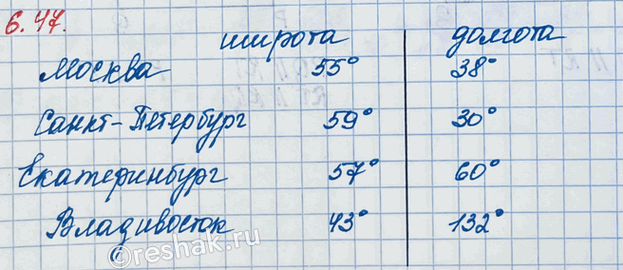 6.47.
широта долгота
Москва 55° 38°
Санкт-Петербург 59° 30°
Екатеринбург 57° 60°
Владивосток 43° 132°
©reshak.ru